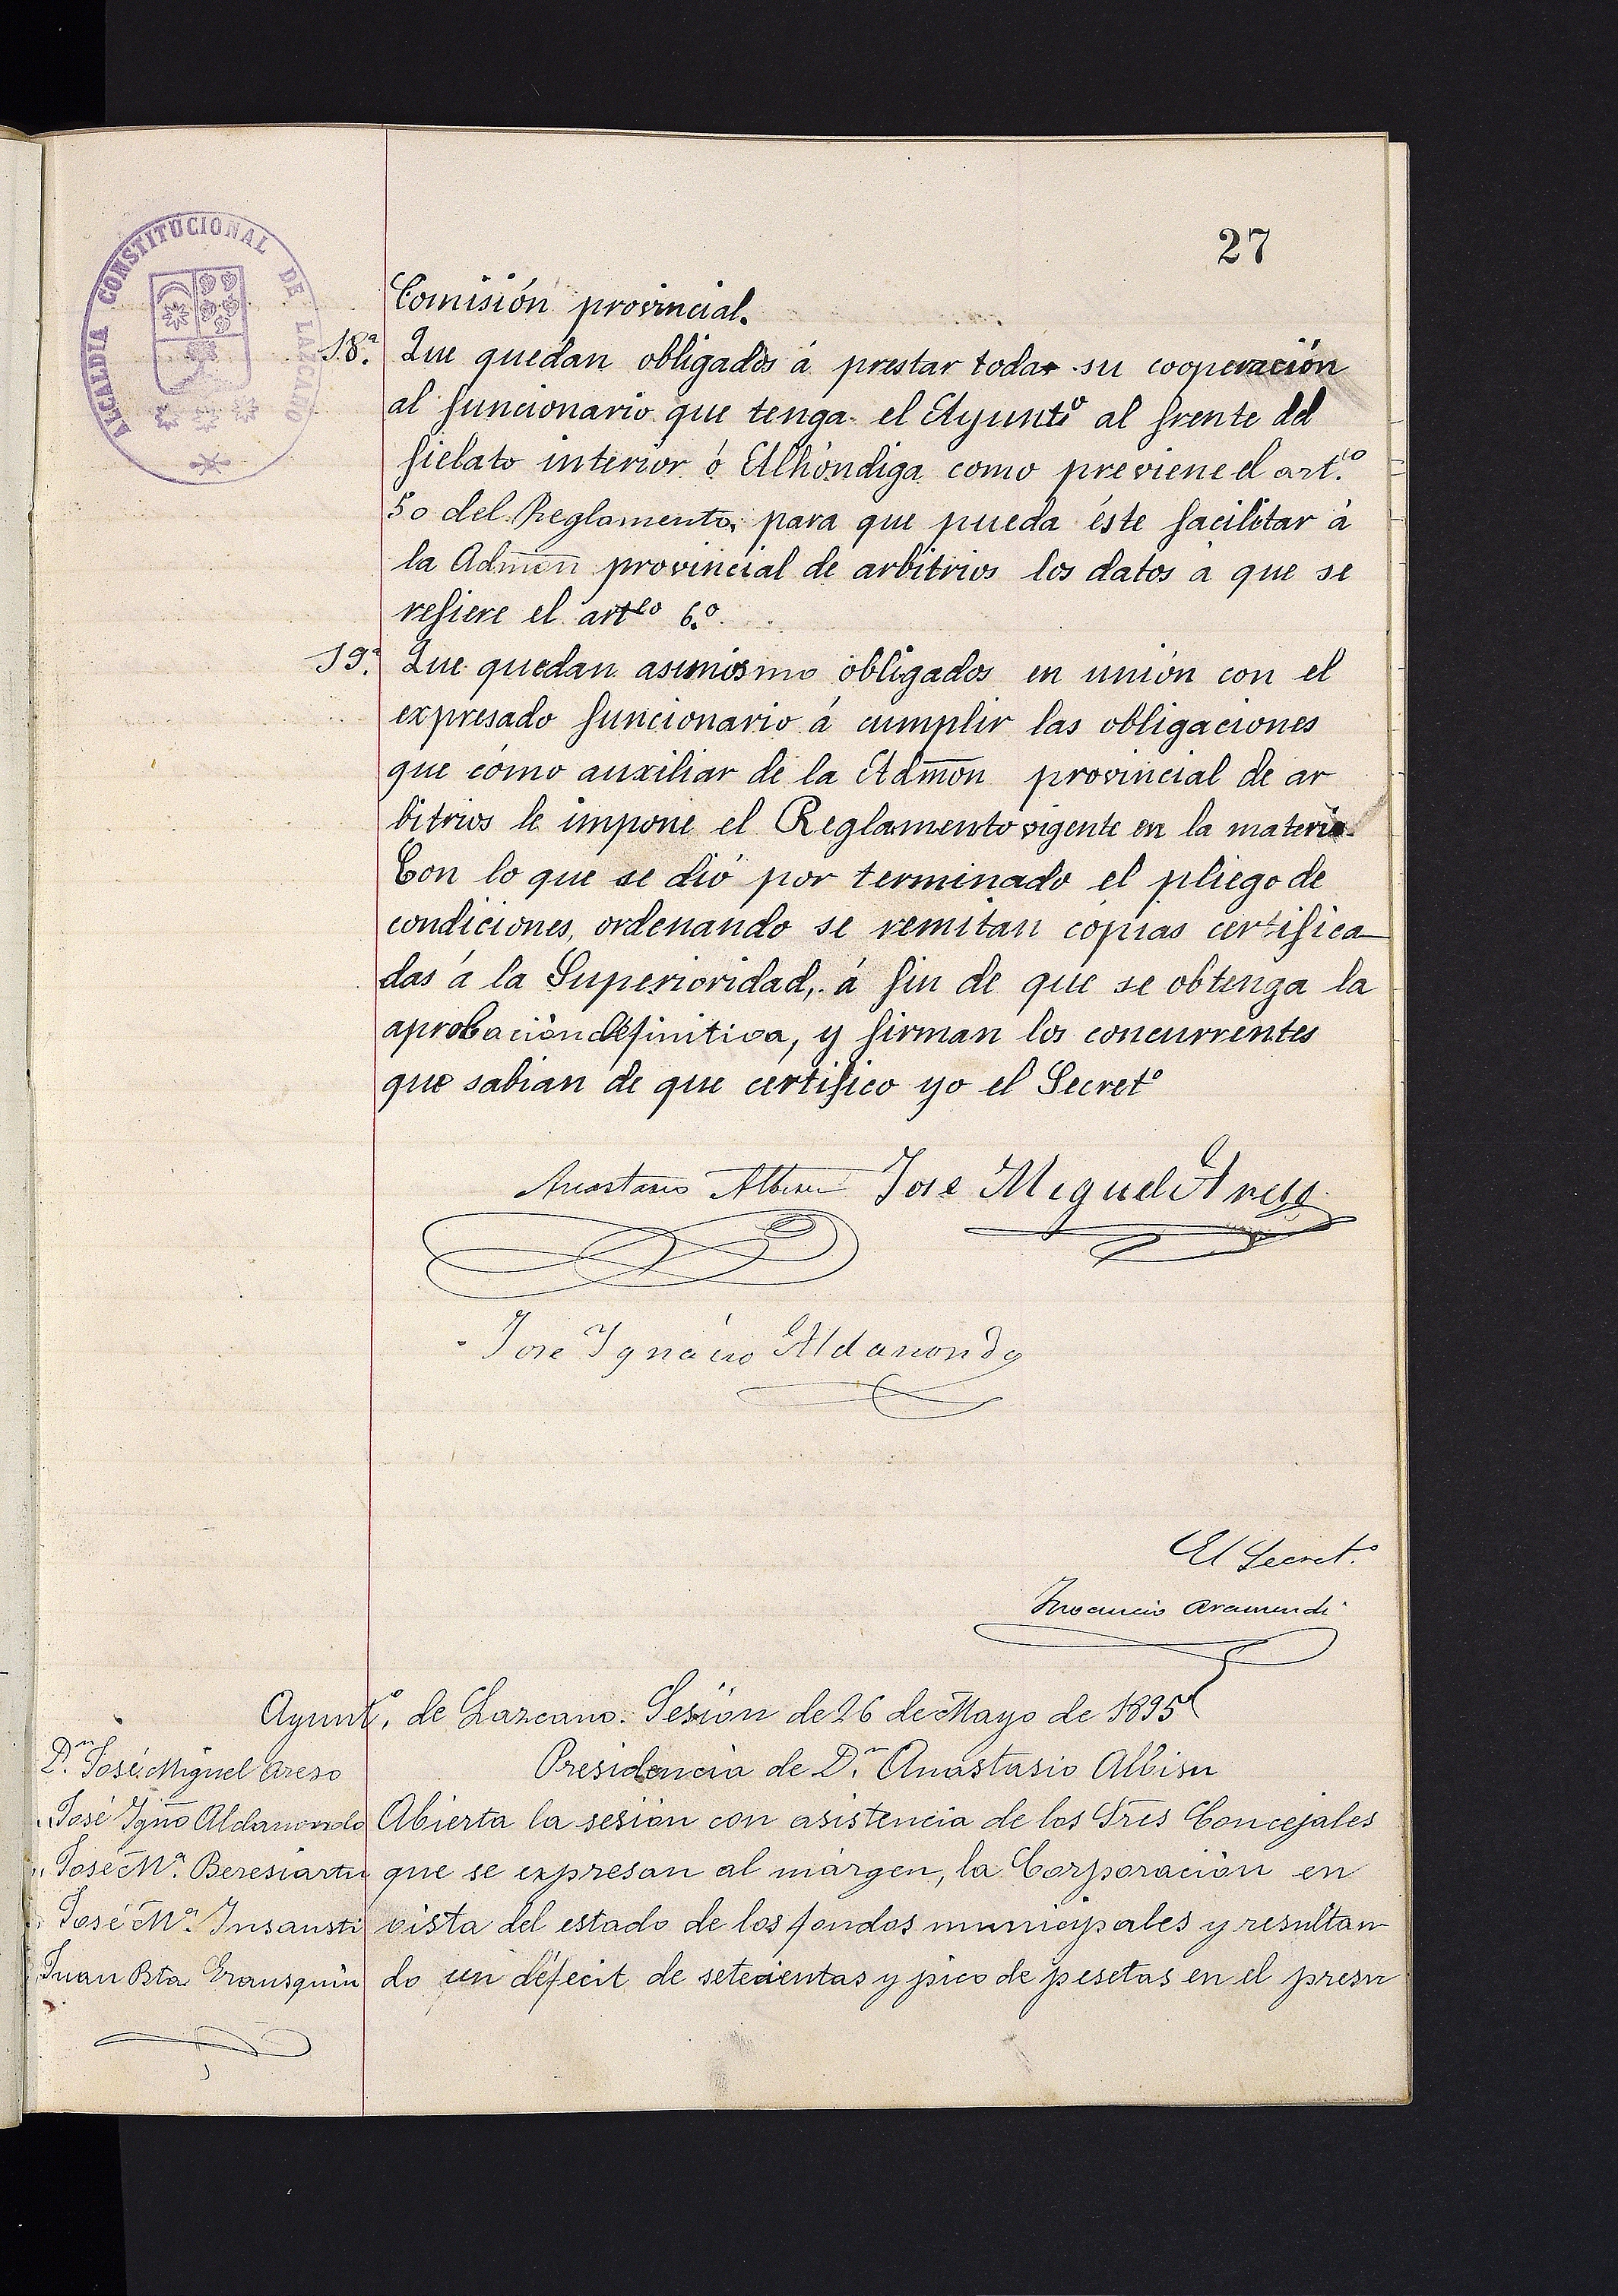 27
ALCALDIA CONSTITUCIONAL DE LAZCANO
Comisión provincial.
18.ª Que quedan obligados á prestar toda su cooperación
al funcionario que tenga el Ayuntº al frente del
fielato interior ó Alhóndiga como previene el art.º
50 del Reglamento, para que pueda éste facilitar á
la Admón provincial de arbitrios los datos á que se
refiere el artºo 6.º
19.ª Que quedan asimismo obligados en unión con el
expresado funcionario á cumplir las obligaciones
que cómo auxiliar de la Admon provincial de ar
bitrios le impone el Reglamento vigente en la materia.
Con lo que se dió por terminado el pliego de
condiciones, ordenando se remitan copias certifica
das á la Superioridad, á fin de que se obtenga la
aprobación definitiva, y firman los concurrentes
que sabian de que certifico yo el Secretº
Anastasio Albisu Jose Miguel Areso
Jose Ignacio Aldanondo
El Secret.º
Inocencio Aramendi
Ayunt.º de Lazcano. Sesión de 26 de Mayo de 1895
Presidencia de D.n Anastasio Albisu
D.n José Miguel Areso
„ José Ignº Aldanondo
„ José M.ª Beresiartu
„ José M.ª Insausti
„ Juan Bta Eransquin
Abierta la sesión con asistencia de los Sres Concejales
que se expresan al márgen, la Corporación en
vista del estado de los fondos municipales y resultan
do un défecit de setecientas y pico de pesetas en el presu